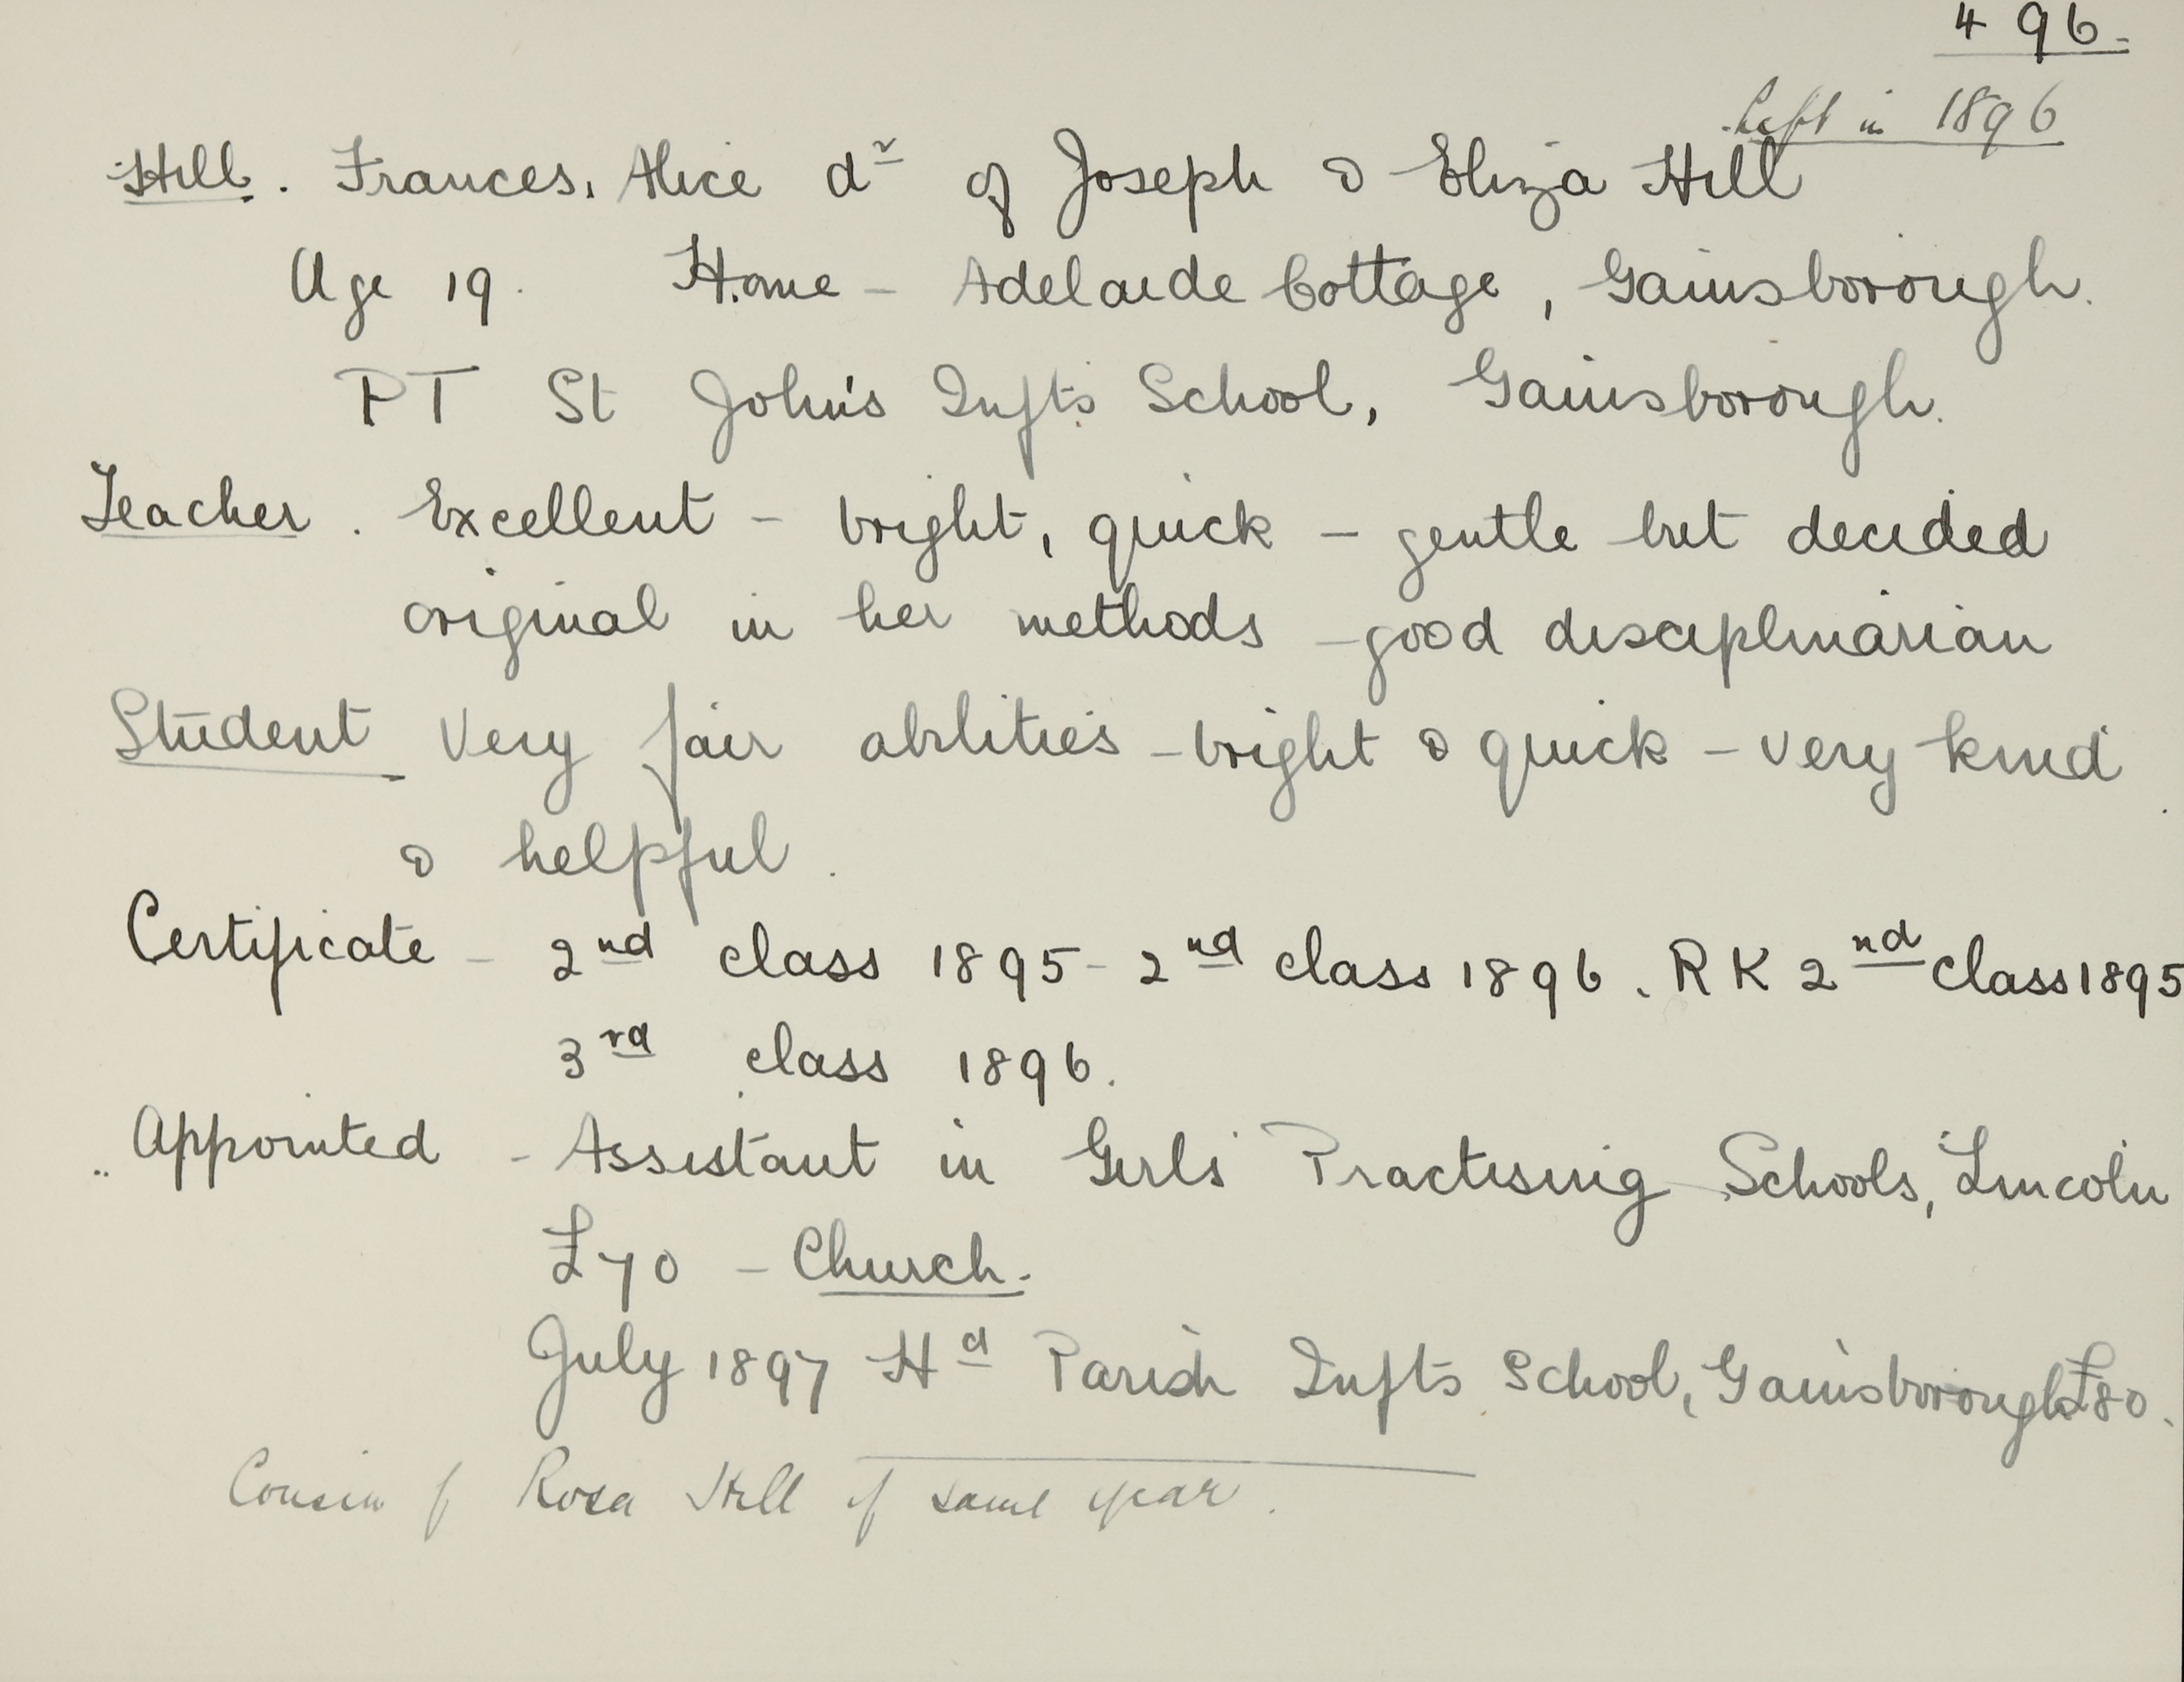 496.
Left in 1896
Hill. Frances, Alice dr of Joseph & Eliza Hill
Age 19. Home - Adelaide Cottage, Gainsborough.
PT St John's Infts School, Gainsborough.
Teacher. Excellent - bright, quick - gentle but decided
original in her methods - good disciplinarian
Student Very fair abilities - bright & quick - very kind
& helpful.
Certificate - 2nd class 1895 - 2nd class 1896. RK 2nd class 1895
3rd class 1896.
Appointed - Assistant in Girls' Practising Schools, Lincoln
£70 - Church.
July 1897 Hd Parish Infts School, Gainsborough £80.
Cousin of Rosa Hill of same year.